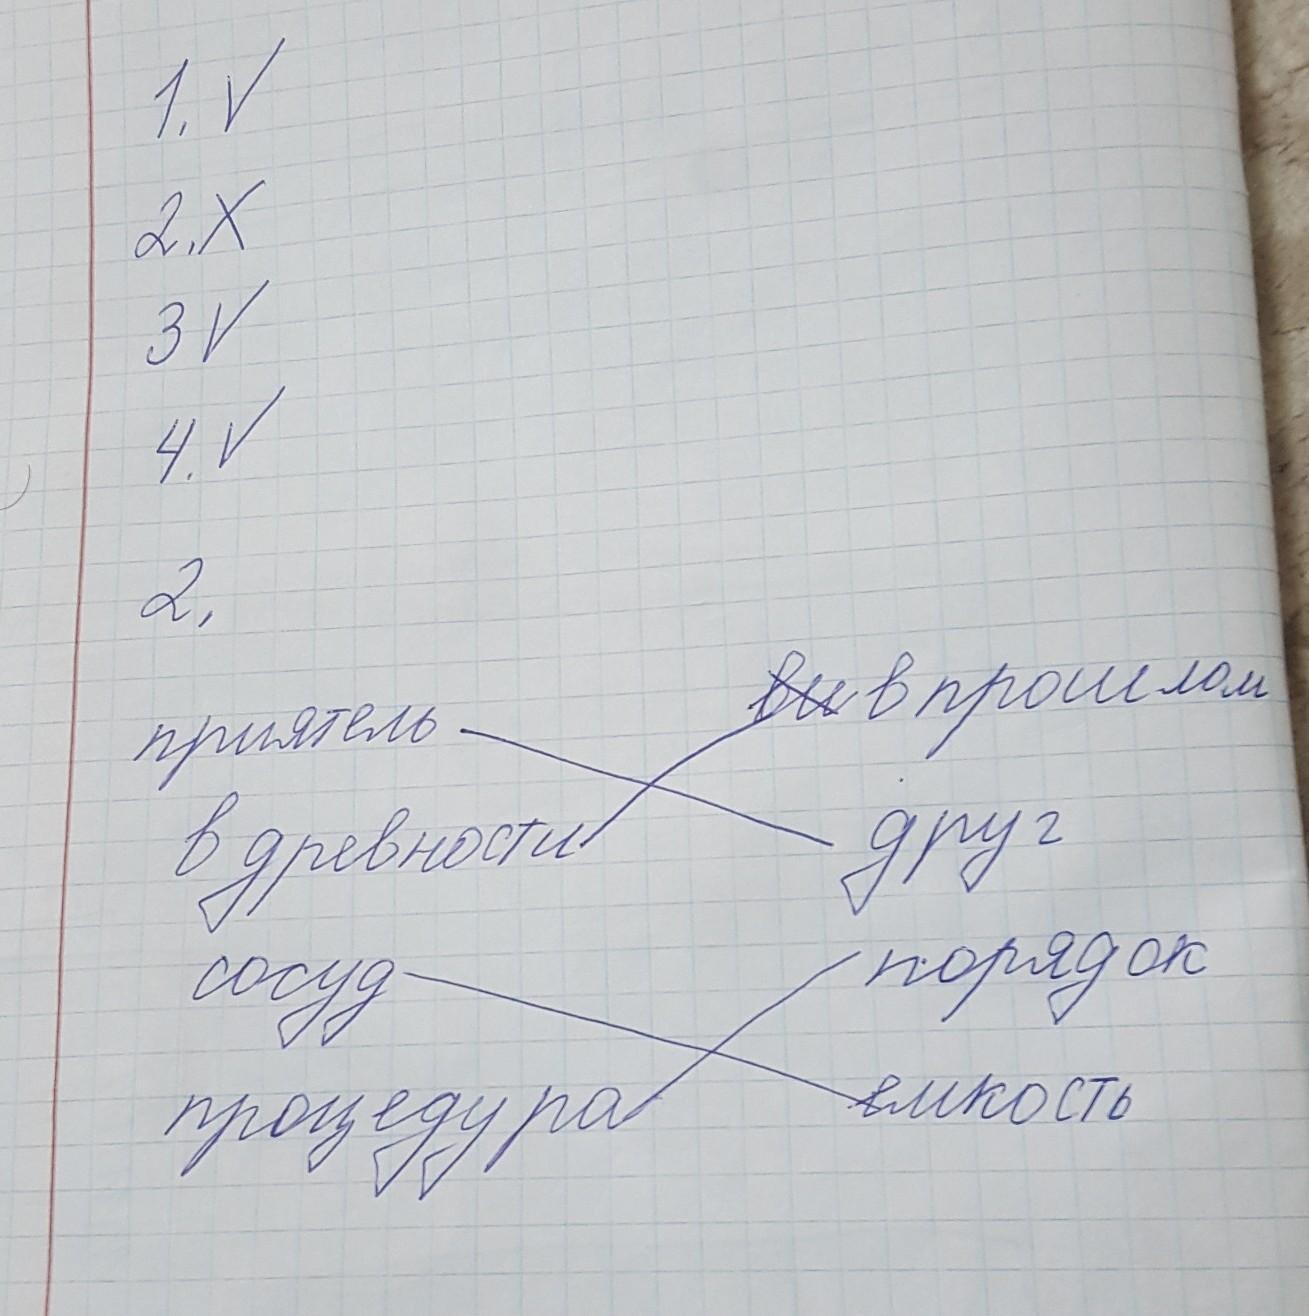 1. V
2. X
3 V
4. V
2.
приятель в прошлом
в древности друг
сосуд порядок
процедура емкость